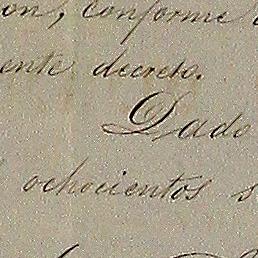 on, conforme
ente decreto.
Dado
ochocientos s